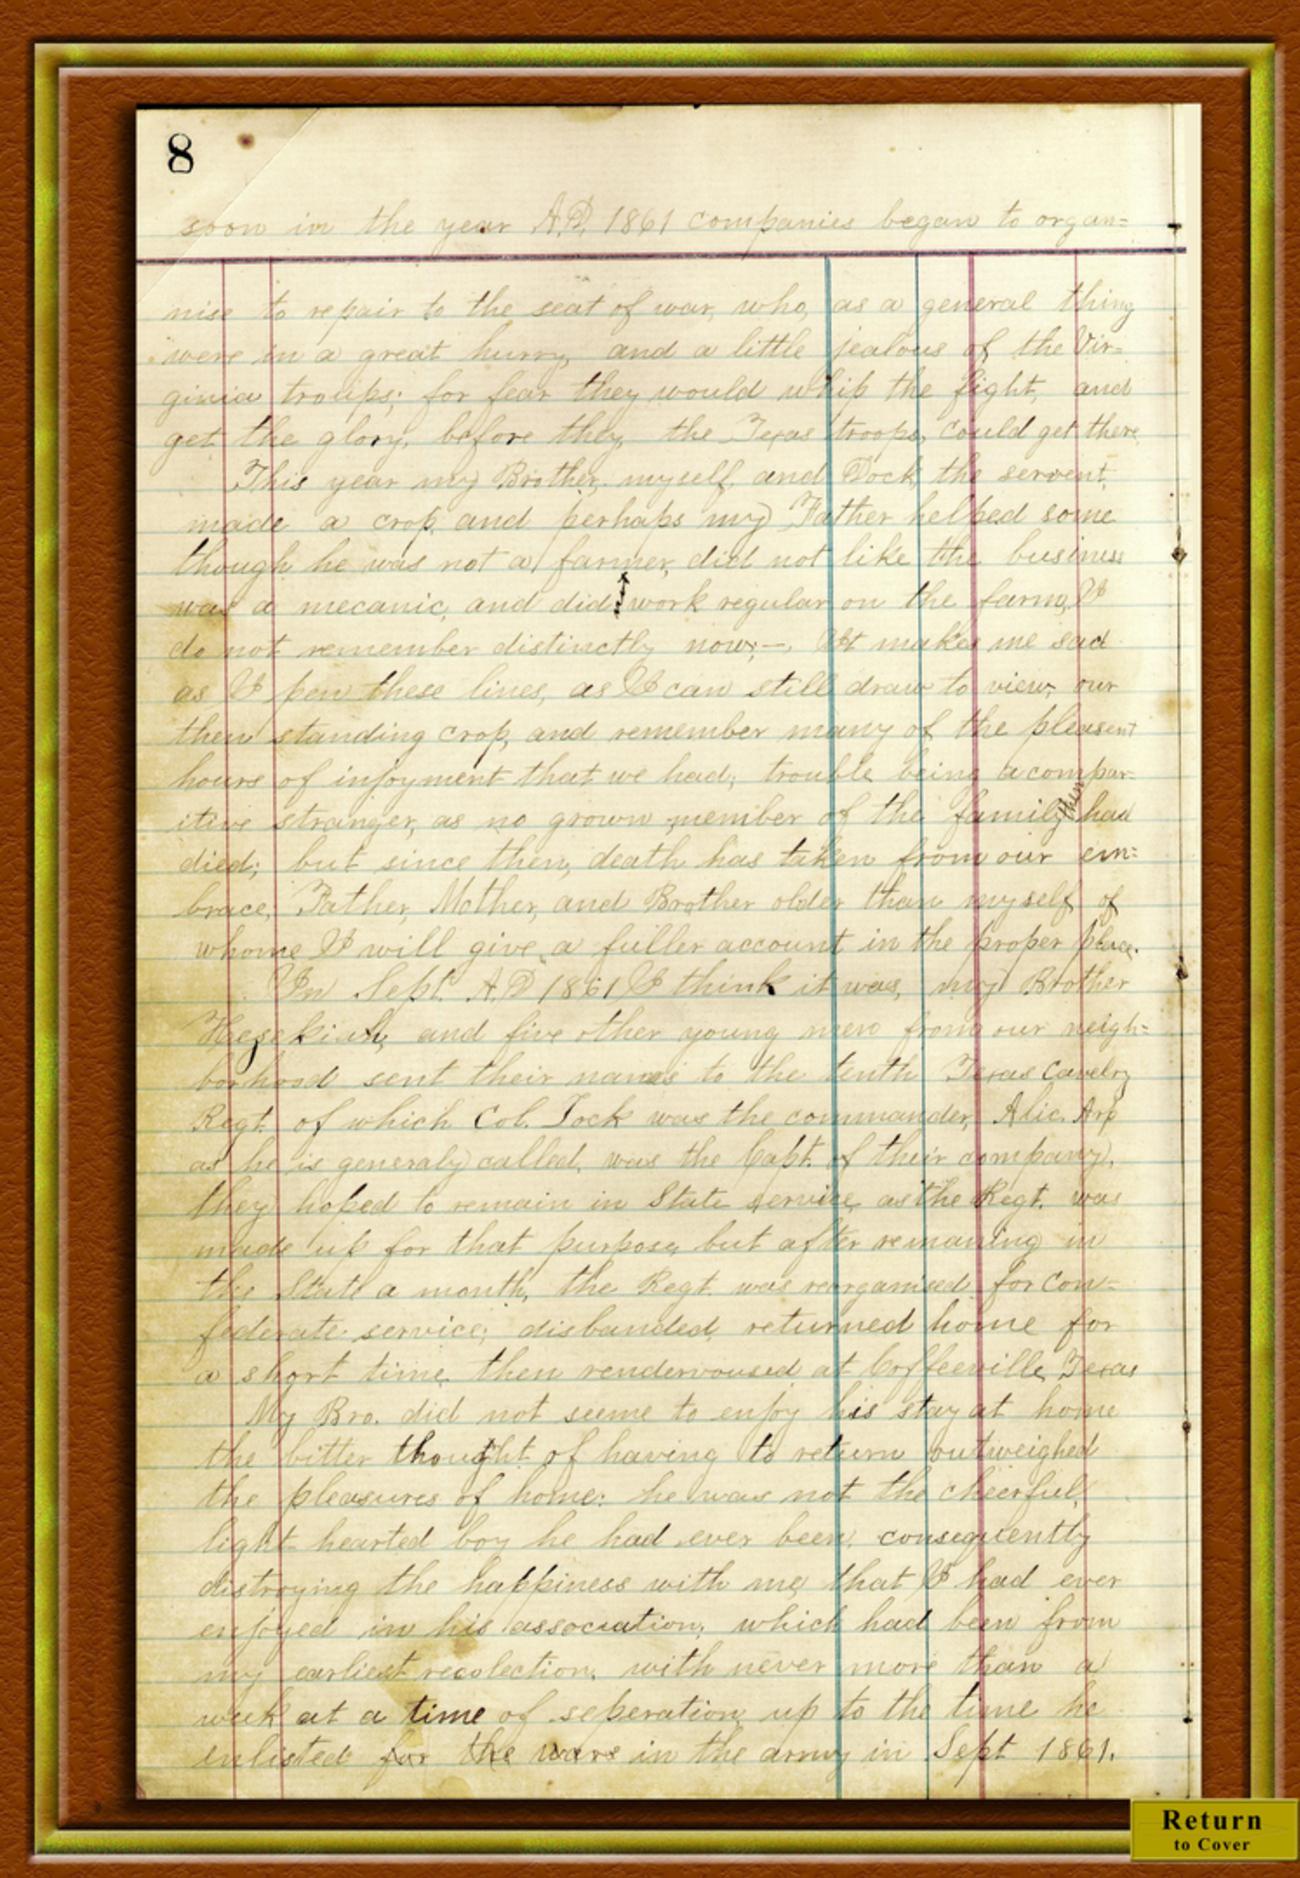 8
soon in the year A.D. 1861 companies began to organ=
nise to repair to the seat of war, who, as a general thing
were in a great hurry, and a little jealous of the Vir=
ginia troups; for fear they would whip the fight, and
get the glory, before they, the Texas troops, could get there
This year my Brother, myself, and Dock, the servent,
made a crop, and perhaps my Father helped some
though he was not a farmer, did not like the business
was a mecanic, and did work regular on the farm, I
do not remember distinctly now;—. It makes me sad
as I pen these lines, as I can still draw to view, our
then standing crop, and remember many of the pleasent
hours of injoyment that we had; trouble being a compar=
itive stranger, as no grown member of the family then had
died; but since then, death has taken from our em=
brace, Father, Mother, and Brother older than myself, of
whome I will give a fuller account in the proper place.
In Sept. A.D 1861 I think it was, my Brother
Hezekiah, and five other young men from our neigh=
borhood sent their names to the tenth Texas Cavelry
Regt. of which Col. Lock was the commander, Alic. Arp
as he is generaly called, was the Capt. of their company,
they hoped to remain in State service, as the Regt. was
made up for that purpose, but after remaning in
the State a month, the Regt. was reorganised for con=
federate service; disbanded, returned home for
a short time, then rendervoused at Coffeeville, Texas
My Bro. did not seeme to enjoy his stay at home
the bitter thought of having to return outweighed
the pleasures of home; he was not the cheerful,
light hearted boy he had ever been, consequently
distroying the happiness with me, that I had ever
enjoyed in his association, which had been from
my earliest recolection, with never more than a
week at a time of seperation, up to the time he
enlisted for the wars in the army in Sept 1861.
Return
to Cover